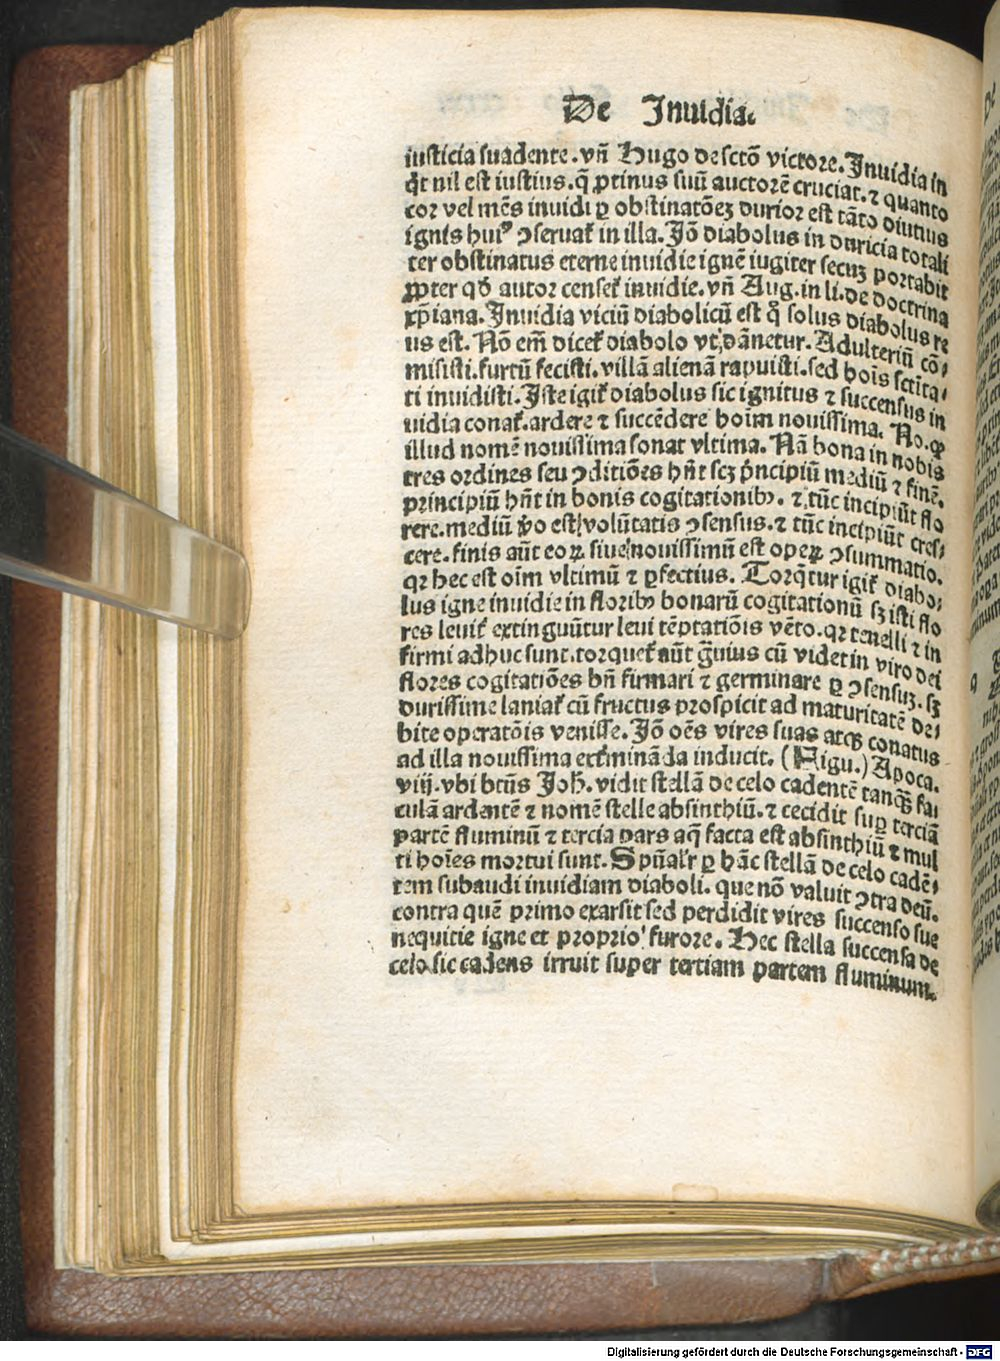 De Inuidia.
iusticia suadente. vñ Hugo de sctõ victore. Inuidia in
qt nil est iustius. q̃ ꝓtinus suũ auctorẽ cruciat. ⁊ quanto
cor vel mẽs inuidi ꝑ obstinatõeꝫ durior est tãto diutius
ignis huiꝰ ↄseruat̃ in illa. Jõ diabolus in duricia totali
ter obstinatus eterne inuidie ignẽ iugiter secuꝫ portabit
ꝓpter qđ autor censet̃ inuidie. vñ Aug. in li. de doctrina
xp̃iana. Inuidia viciũ diabolicũ est q̊ solus diabolus re
us est. Nõ em̃ dicet̃ diabolo vt dãnetur. Adulteriũ cõ-
misisti. furtũ fecisti. villã alienã rapuisti. sed hoĩs sctĩta-
ti inuidisti. Iste igit̃ diabolus sic ignitus ⁊ succensus in
uidia conat̃. ardere ⁊ succẽdere hoĩm nouissima. No. ꝙ
illud nomẽ nouissima sonat vltima. Nã bona in nobis
tres ordines seu ↄditiões hñt scꝫ p̃ncipiũ mediũ ⁊ finẽ.
principiũ hñt in bonis cogitationibꝰ. ⁊ tũc incipiũt flo
rere. mediũ ṽo est volũtatis ↄsensus. ⁊ tũc incipiũt cres-
cere. finis aũt eoꝝ siue nouissimũ est opeꝝ ↄsummatio.
qꝛ hec est oĩm vltimũ ⁊ ꝑfectius. Torq̃tur igit̃ diabo-
lus igne inuidie in floribꝰ bonarũ cogitationũ sꝫ isti flo
res leuit̃ extinguũtur leui tẽptatiõis vẽto. qꝛ tenelli ⁊ in
firmi adhuc sunt. torquet̃ aũt g̃uius cũ videt in viro dei
flores cogitatiões bñ firmari ⁊ germinare ꝑ ↄsensuꝫ. sꝫ
durissime laniat̃ cũ fructus prospicit ad maturitatẽ de-
bite operatõis venisse. Jõ oẽs vires suas atqꝫ conatus
ad illa nouissima ext̃minãda inducit. (Figu.) Apoca.
viij. vbi btũs Joh̃. vidit stellã de celo cadentẽ tanq̃ꝫ fa
culã ardentẽ ⁊ nomẽ stelle absinthiũ. ⁊ cecidit suꝑ terciã
partẽ fluminũ ⁊ tercia pars aq̃ facta est absinthiũ ⁊ mul
ti hoĩes mortui sunt. Spñal'r ꝑ hãc stellã de celo cadẽ-
tem subaudi inuidiam diaboli. que nõ valuit ↄtra deũ.
contra quẽ primo exarsit sed perdidit vires succenso sue
nequitie igne et proprio furore. Hec stella succensa de
celo sic cadens irruit super tertiam partem fluminum.
Digitalisierung gefördert durch die Deutsche Forschungsgemeinschaft - DFG